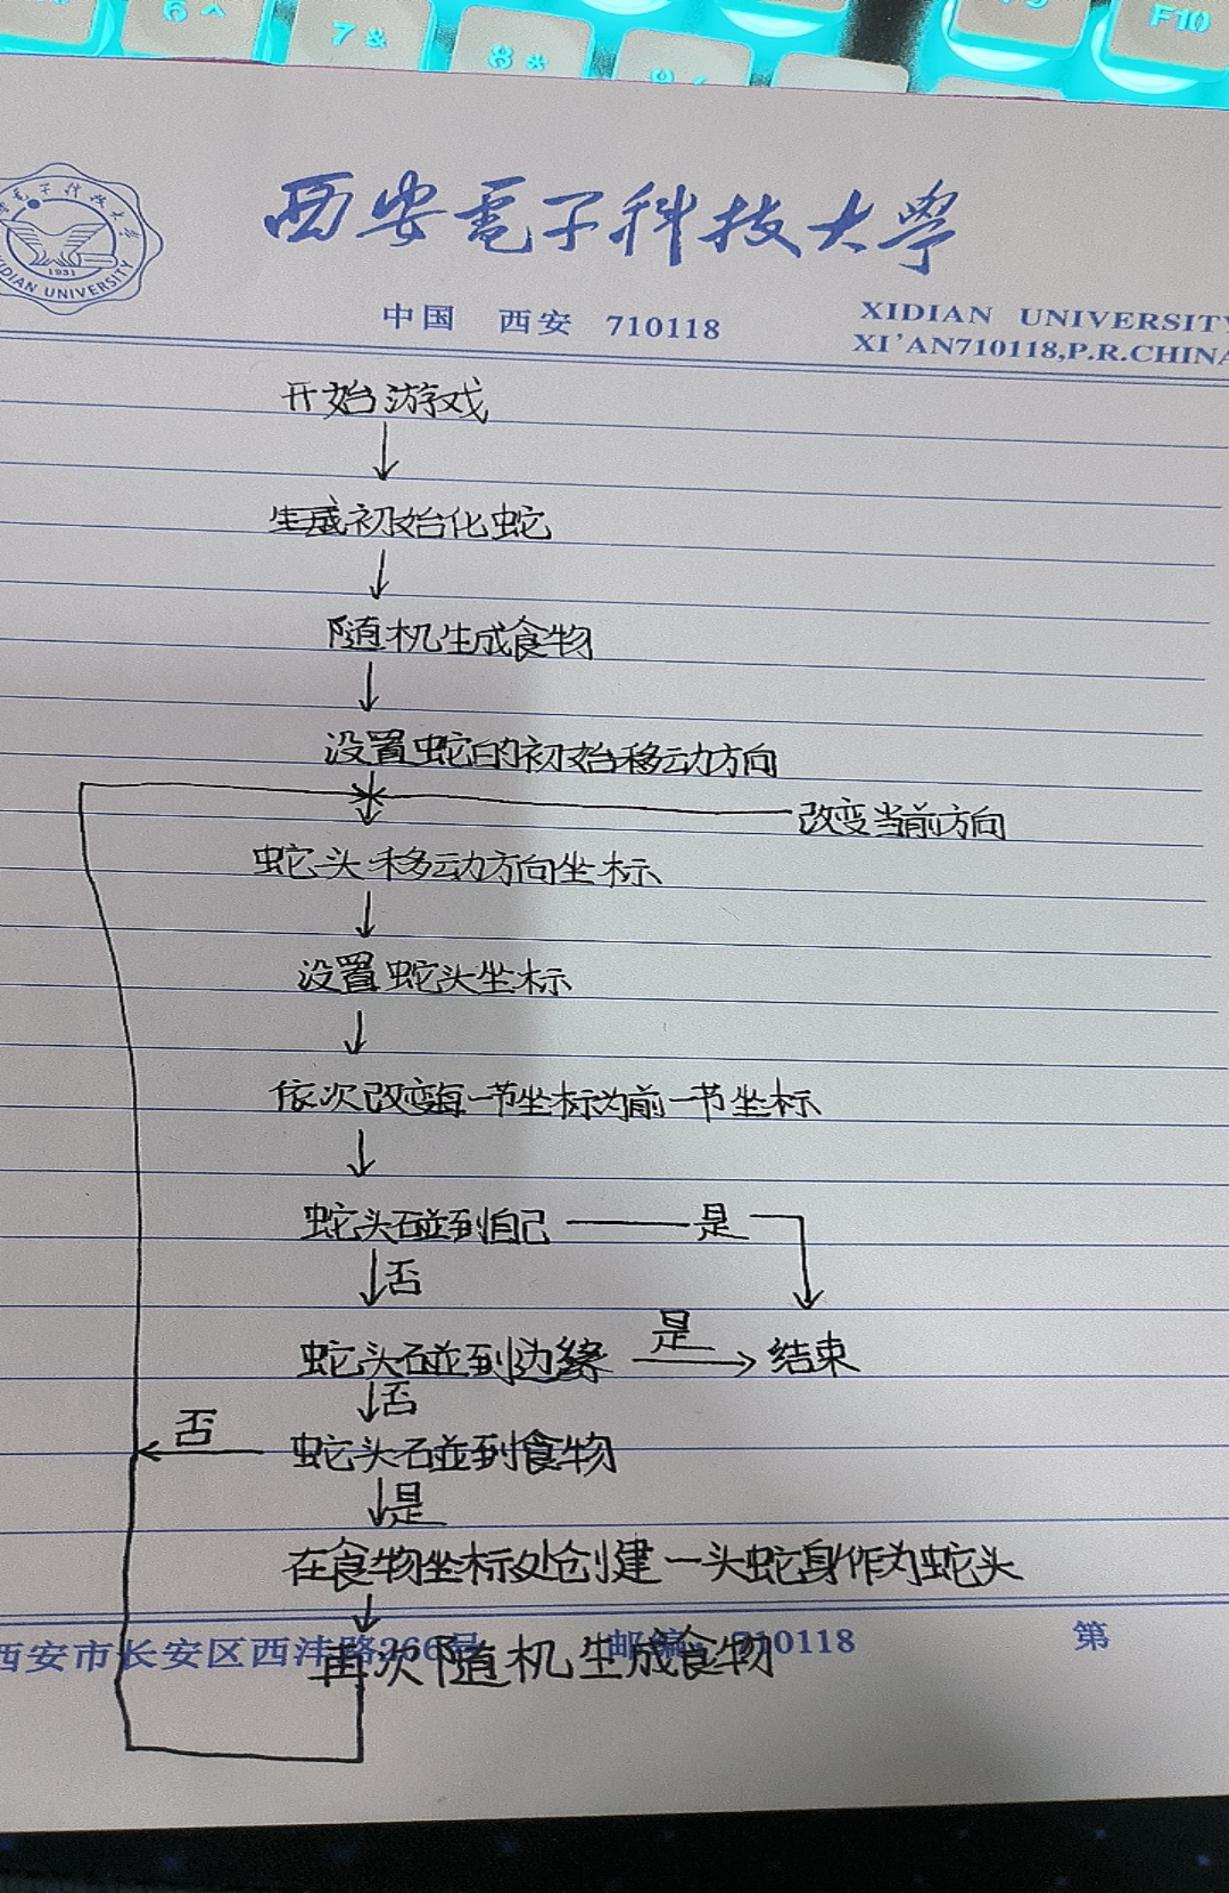 6 ^
7 &
8 *
F10
西安電子科技大學
1931
XIDIAN UNIVERSITY
中国 西安 710118
XIDIAN UNIVERSITY
XI'AN710118,P.R.CHINA
开始游戏
生成初始化蛇
随机生成食物
设置蛇的初始移动方向
改变当前方向
蛇头移动方向坐标
设置蛇头坐标
依次改变每一节坐标为前一节坐标
蛇头碰到自己 是
否
是
蛇头碰到边缘 结束
否
否
蛇头碰到食物
是
在食物坐标处创建一头蛇身作为蛇头
西安市长安区西沣路266号 邮编:710118 第
再次随机生成食物